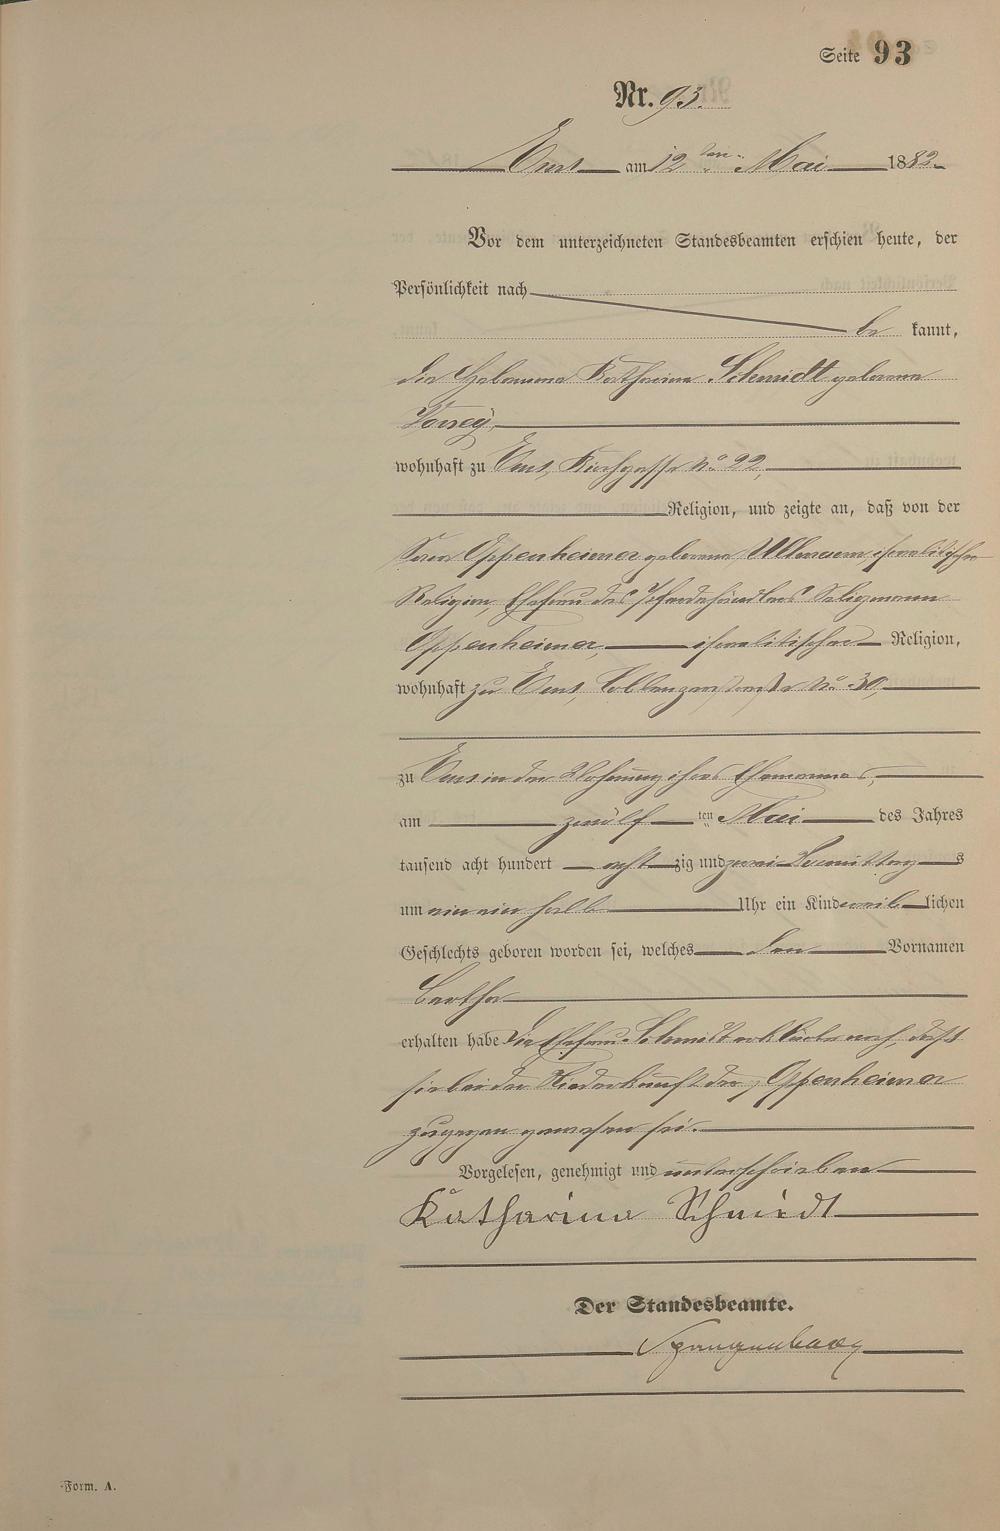 Seite 93
Nr. 93.
Ems am 12ten Mai 1882.
Vor dem unterzeichneten Standesbeamten erschien heute, der
Persönlichkeit nach
be kannt,
die Hebamme Katharina Schmidt geborene
wohnhaft zu Ems, Kirchgasse No 22,
Religion, und zeigte an, daß von der
Oppenheimer geborene Ullmann israelitischer
Religion, Ehefrau des Pferdehändlers Seligmann
Oppenheimer, israelitischer Religion,
wohnhaft zu Ems, Coblenzerstraße No 30,
zu Ems in der Wohnung ihres Ehemannes,
am zwölf ten Mai des Jahres
tausend acht hundert acht zig und zwei Vormittag s
um ein ein halb Uhr ein Kind weib lichen
Geschlechts geboren worden sei, welches den Vornamen
Bertha
erhalten habe Die Ehefrau Schmidt erklärte noch, daß
sie bei der Niederkunft der Oppenheimer
zugegen gewesen sei.
Vorgelesen, genehmigt und unterschrieben
Katharina Schmidt
Der Standesbeamte.
Spangenberg
Form. A.